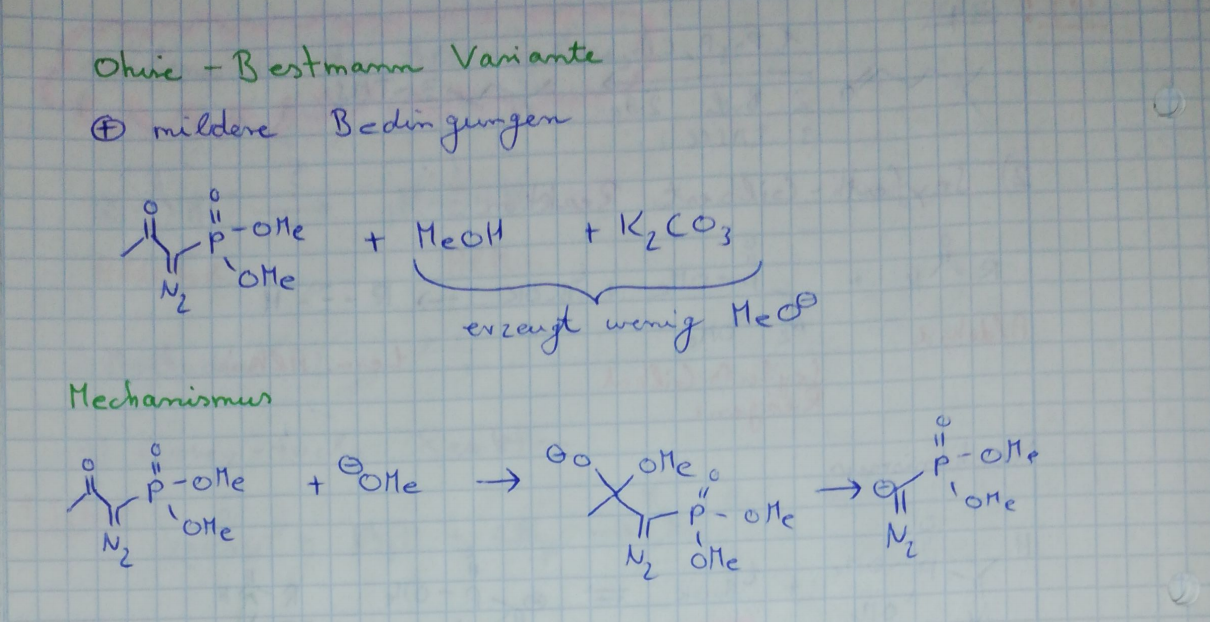 Ohire - Bestmann Variante
⊕ mildere Bedingungen
O O
P -OMe + MeOH + K2CO3
OMe
N2
erzeugt wenig MeO⊖
Mechanismus
O O ⊖O OMe O O
P -OMe + ⊖OMe → P - OMe → ⊖ P -OMe
OMe OMe OMe
N2 N2 N2